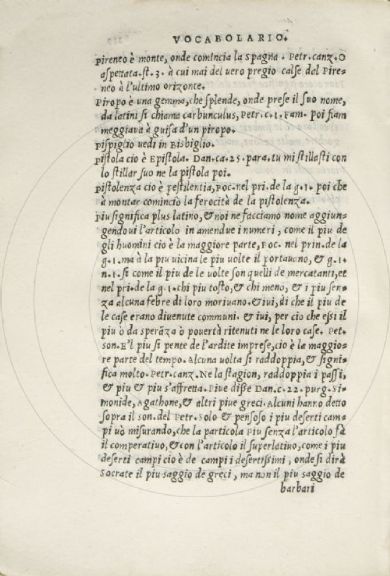 VOCABOLARIO.
Pireneo è monte, onde comincia la Spagna. Petr. canz. O
aspettata. st. 3. à cui mai del uero pregio calse dal Pire-
neo à l'ultimo orizonte.
Piropo è una gemma, che splende, onde prese il suo nome,
da latini si chiama carbunculus, Petr. c. 1. Fam. Poi fiam
meggiaua à guisa d'un piropo.
Pispiglio uedi in Bisbiglio.
Pistola cio è Epistola. Dan. ca. 25. para. tu mi stillasti con
lo stillar suo ne la pistola poi.
Pistolenza cio è pestilentia, Boc. nel pri. de la g. 1. poi che
à montar cominciò la ferocità de la pistolenza.
Piu significa plus latino, & noi ne facciamo nome aggiun-
gendoui l'articolo in amendue i numeri, come il piu de
gli huomini cio è la maggiore parte, Boc. nel prin. de la
g. 1. ma à la piu uicina le piu uolte il portauano, & g. 1.
n. 1. si come il piu de le uolte son quelli de mercatanti, et
nel pri. de la g. 1. chi piu tosto, & chi meno, & i piu sen-
za alcuna febre di loro moriuano. & iui, di che il piu de
le case erano diuenute communi. & iui, per cio che essi il
piu ò da sperāza ò pouertà ritenuti ne le loro case. Pet.
son. E'l piu si pente de l'ardite imprese, cio è la maggio-
re parte del tempo. Alcuna uolta si raddoppia, & signi-
fica molto. Petr. canz. Ne la stagion, raddoppia i passi,
& piu & piu s'affretta. Piue disse Dan. c. 22. purg. Si-
monide, Agathone, & altri piue greci. Alcuni hanno detto
sopra il son. del Petr. Solo & pensoso i piu deserti cam-
pi uò misurando, che la particola Piu senza l'articolo fà
il comperatiuo, & con l'articolo il superlatiuo, come i piu
deserti campi cio è de campi i desertissimi, onde si dirà
Socrate il piu saggio de greci, ma non il piu saggio de
barbari